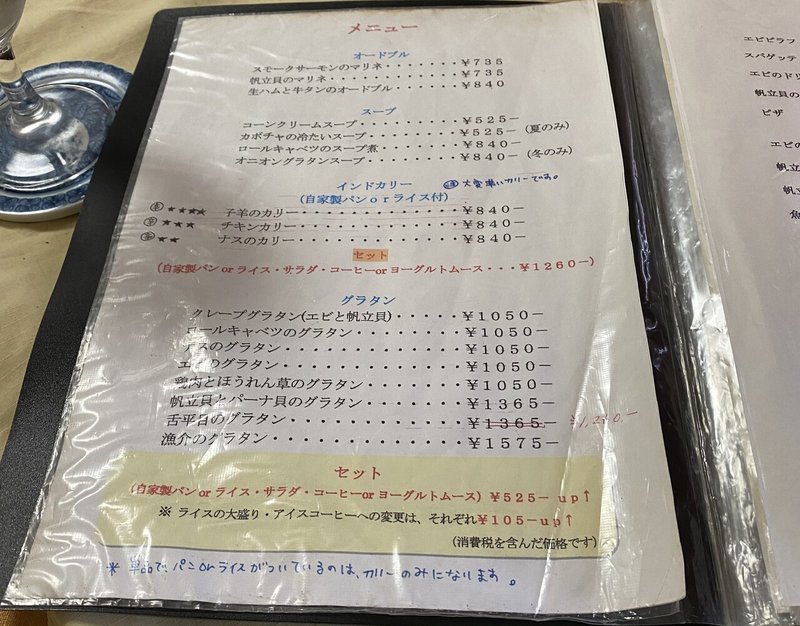 メニュー
オードブル
スモークサーモンのマリネ・・・・・・・・¥735
帆立貝のマリネ・・・・・・・・・・・・・¥735
生ハムと牛タンのオードブル・・・・・・・¥840
スープ
コーンクリームスープ・・・・・・・・・¥525-
カボチャの冷たいスープ・・・・・・・・¥525-(夏のみ)
ロールキャベツのスープ煮・・・・・・・¥840-
オニオングラタンスープ・・・・・・・・¥840-(冬のみ)
インドカリー
大変辛いカリーです。
(自家製パンorライス付)
★★★★ 子羊のカリー・・・・・・・・・・・・・¥840-
★★★ チキンカリー・・・・・・・・・・・・・¥840-
★★ ナスのカリー・・・・・・・・・・・・・¥840-
セット
(自家製パンorライス・サラダ・コーヒーorヨーグルトムース・・・¥1260-)
グラタン
クレープグラタン(エビと帆立貝)・・・・・¥1050-
ロールキャベツのグラタン・・・・・・・・¥1050-
ナスのグラタン・・・・・・・・・・・・・¥1050-
エビのグラタン・・・・・・・・・・・・・¥1050-
鶏肉とほうれん草のグラタン・・・・・・・¥1050-
帆立貝とパーナ貝のグラタン・・・・・・・¥1365-
舌平目のグラタン・・・・・・・・・・・・¥1365-
漁介のグラタン・・・・・・・・・・・・・¥1575-
セット
(自家製パンorライス・サラダ・コーヒーorヨーグルトムース) ¥525-up↑
※ ライスの大盛り・アイスコーヒーへの変更は、それぞれ¥105-up↑
(消費税を含んだ価格です)
* 単品で、パンorライスがついているのは、カリーのみになります。
エビピラフ
スパゲッティ
エビのドリ
帆立貝の
ピザ
エビの
帆立
帆立
魚